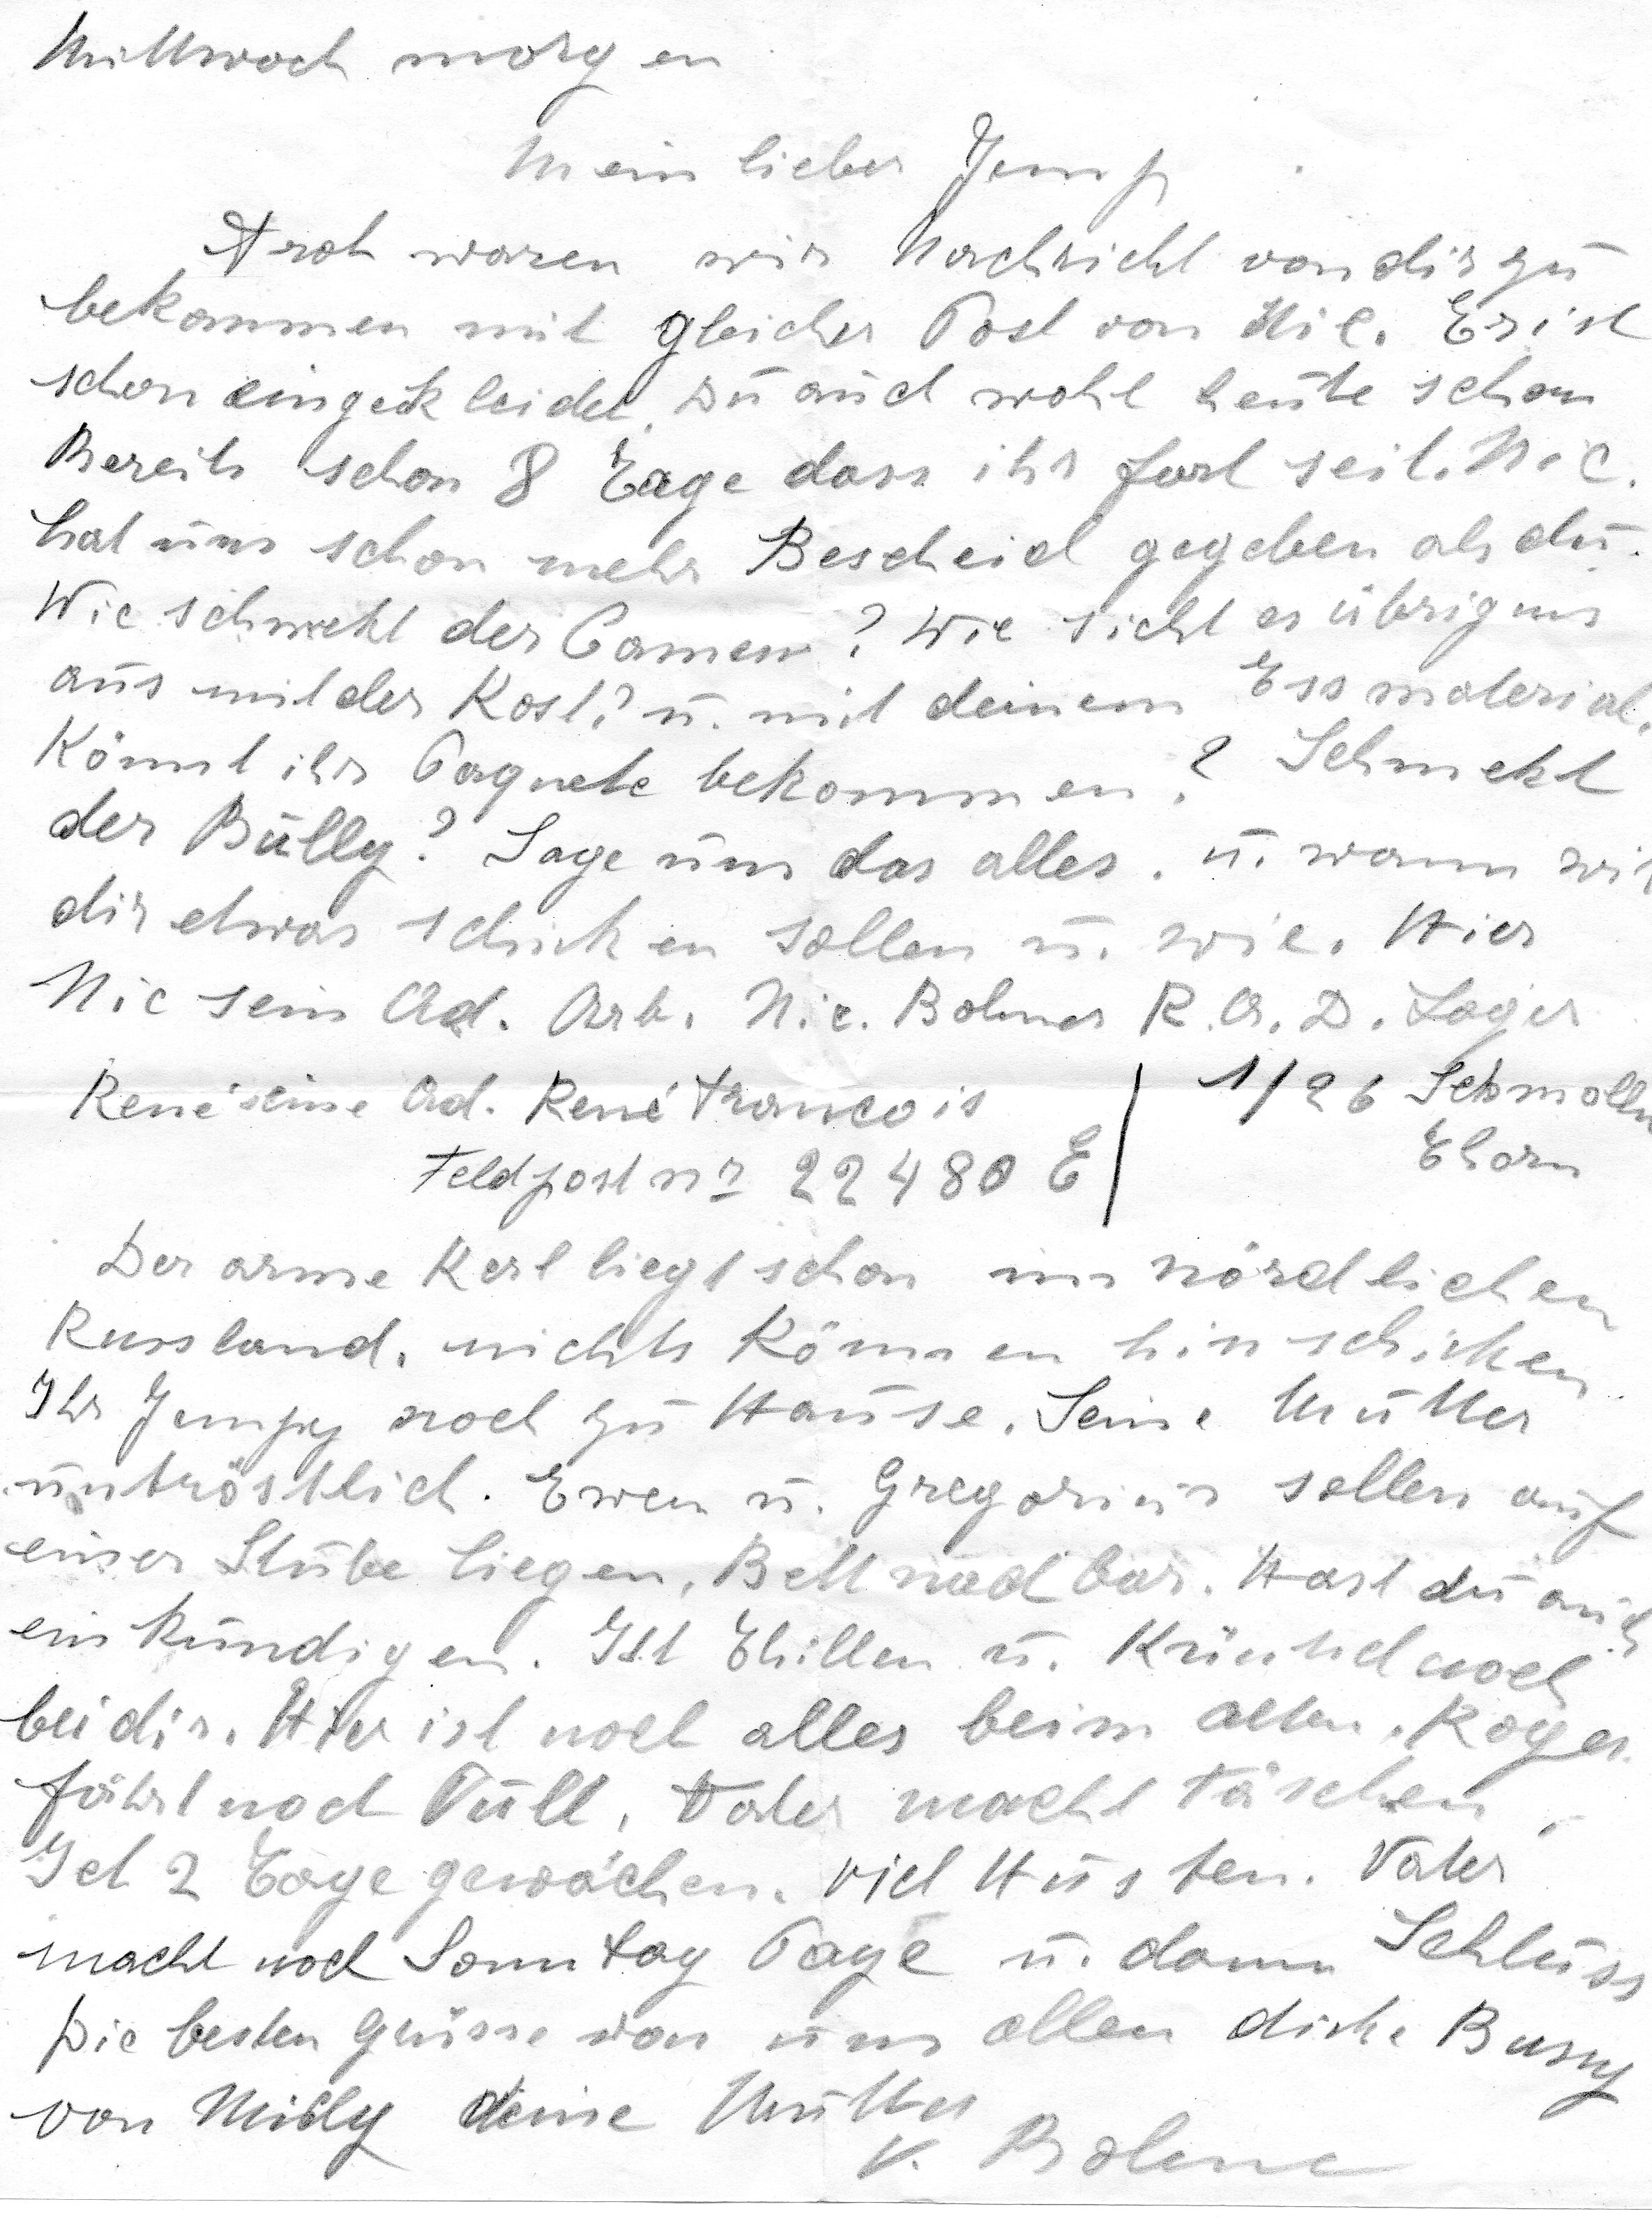 Mittwoch morgen
Mein lieber Jemp
Froh waren wir Nachricht von dir zu
bekommen mit gleicher Post von Nic. Er ist
schon eingekleidet. Du auch wohl heute schon
Bereits schon 8 Tage dass ihr fort seit. Nic.
hat uns schon mehr Bescheid gegeben als du.
Wie schmekt der Camew? Wie sieht es übrigens
aus mit der Kost? u. mit deinem Essmaterial.
Könnt ihr Paquete bekommen? Schmekt
der Bully? Sage uns das alles. u. wann wir
dir etwas schicken sollen u. wie. Hier
Nic sein Ad. Arb. Nic. Bohner R.A.D. Lager
René seine Ad. René Francois | 1/26 Schmolln
Feldpost nr 22480 E | Thorn
Der arme Kerl liegt schon im nördlichen
Russland. nichts können hinschicken
Ihr Jempy noch zu Hause. Seine Mutter
untröstlich. Ewen u. Gregorius sollen auf
einer Stube liegen, Bettnachbar. Hast du auch
ein kundigen. Ist Thillen u. noch
bei dir. Hier ist noch alles beim alten. Roger
fährt noch Tull. Vater macht Täschen,
Ich 2 Tage gewaschen. viel Husten. Vater
macht noch Sonntag Page u. dann Schluss
Die besten Grüsse von uns allen dicke Bussy
von Milly deine Mutter
V. Bohne